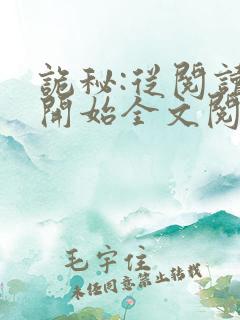 詭秘:從閱讀
開始全文閱
毛宇住
未經同意禁止轉載